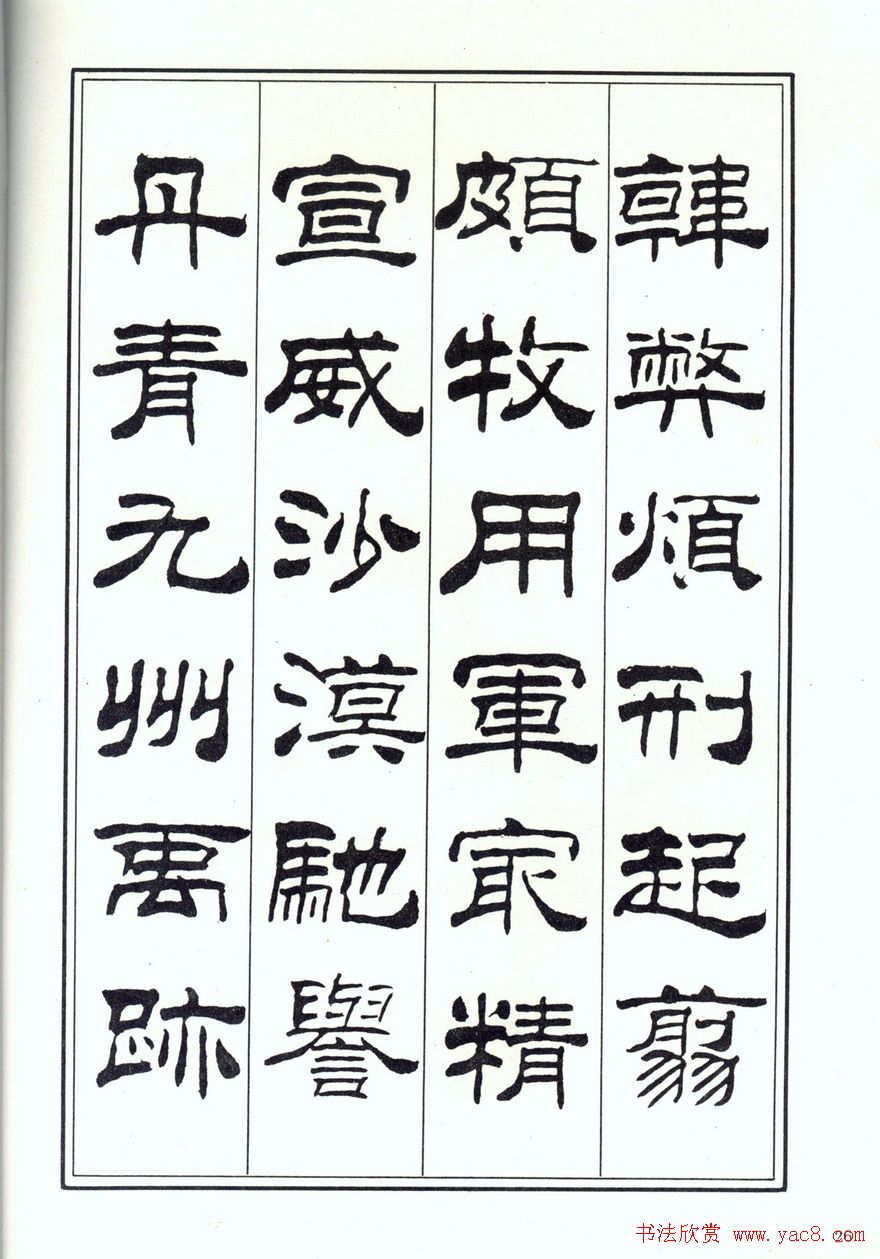 韓弊煩刑起翦
頗牧用軍㝡精
宣威沙漠馳譽
丹青九州禹跡
26
书法欣赏 www.yac8.com